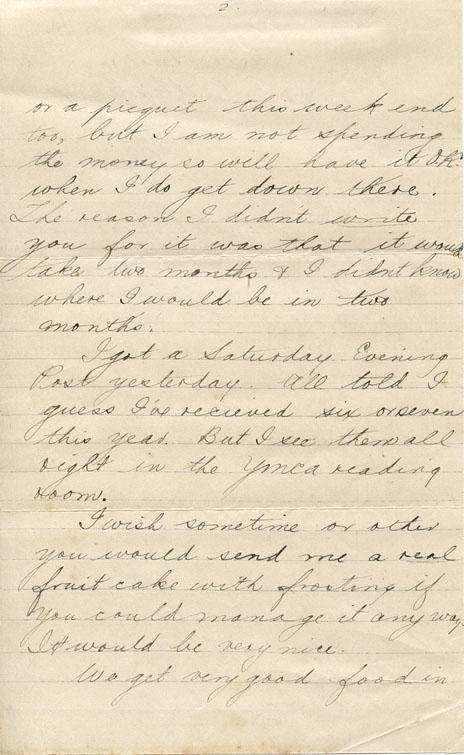 2.
or a picquet this week end
too, but I am not spending
the money so will have it O.K.
when I do get down there.
The reason I didn't write
you for it was that it would
take two months & I didnt know
where I would be in two
months.
I got a Saturday Evening
Post yesterday. All told I
guess I've recieved six or seven
this year. But I see them all
right in the Ymca reading
room.
I wish sometime or other
you would send me a real
fruit cake with frosting if
you could manage it any way.
It would be very nice.
We get very good food in